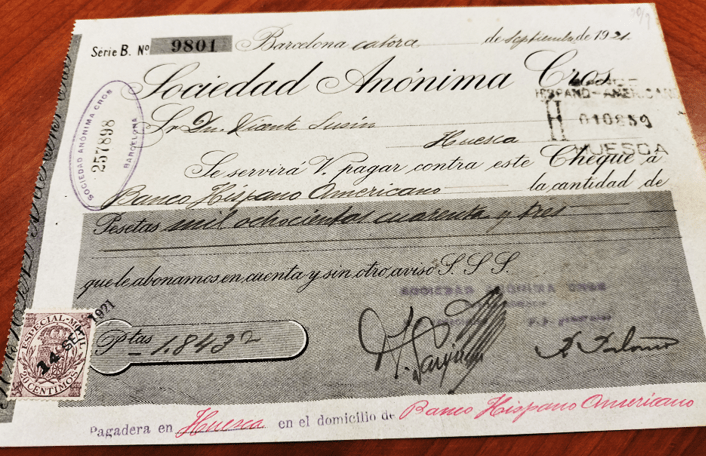 Serie B. Nº 9801 Barcelona catorce de Septiembre de 1921.
Sociedad Anónima Cros
SOCIEDAD ANÓNIMA CROS
257898
BARCELONA
HISPANO-AMERICANO
H 010859
HUESCA
Sr. Dn. Vicente Susín
Huesca
Se servirá V. pagar contra este Cheque a
Banco Hispano Americano la cantidad de
Pesetas mil ochocientos cuarenta y tres
que le abonamos en cuenta y sin otro aviso S. S. S.
SOCIEDAD ANÓNIMA CROS
ESPECIAL MÓVIL
14 SET 1921
CÉNTIMOS
Ptas 1.843
Pagadera en Huesca en el domicilio de Banco Hispano Americano